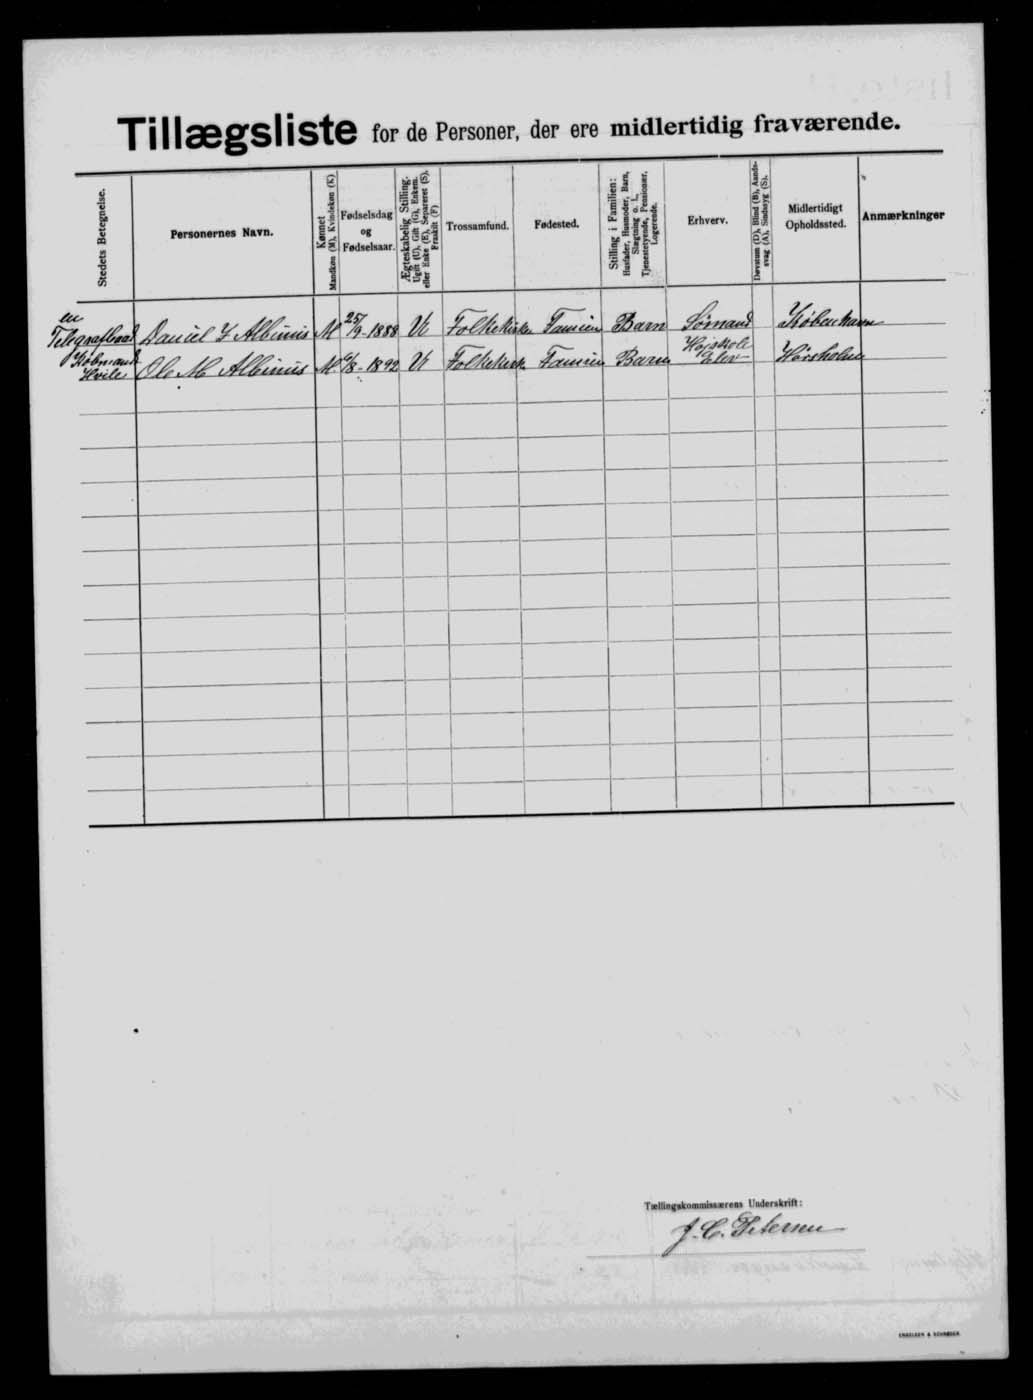 Tillægsliste for de Personer, der ere midlertidig fraværende.
Stedets Betegnelse.
Personernes Navn.
Kønnet
Mandkøn (M), Kvindekøn (K)
Fødselsdag
og
Fødselsaar.
Ægteskabelig Stilling.
Ugift (U), Gift (G), Enkem.
eller Enke (E), Separeret (S),
Fraskilt (F)
Trossamfund.
Fødested.
Stilling i Familien:
Husfader, Husmoder, Barn,
Slægtning o. l.,
Tjenestetyende, Pensionær,
Logerende.
Erhverv.
Døvstum (D), Blind (B), Aands-
svag (A), Sindssyg (S).
Midlertidigt
Opholdssted.
Anmærkninger
en
Daniel Albinus M 25/9-1888 U Folkekirke Barn Sømand København
Købmand Højskole
Hvile Ole M Albinus M 6/8-1892 U Folkekirk Barn Elev Hørsholm
Tællingskommissærens Underskrift:
J. C. Petersen
ENGELSEN & SCHRØDER